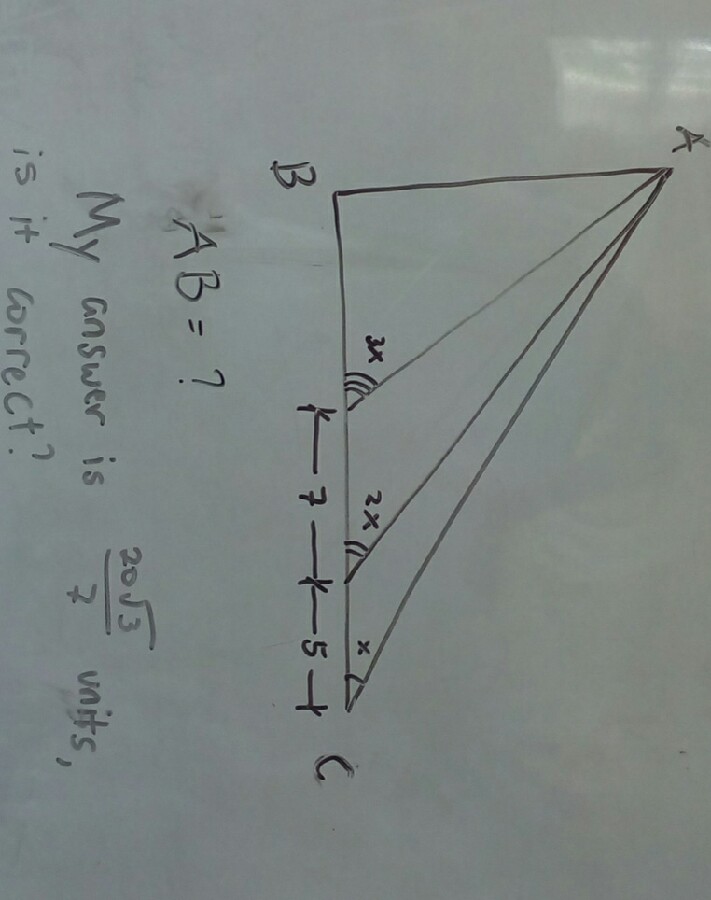 A
3x
2x
x
B
7
5
C
AB = ?
My answer is 20√3/7 units,
is it correct?